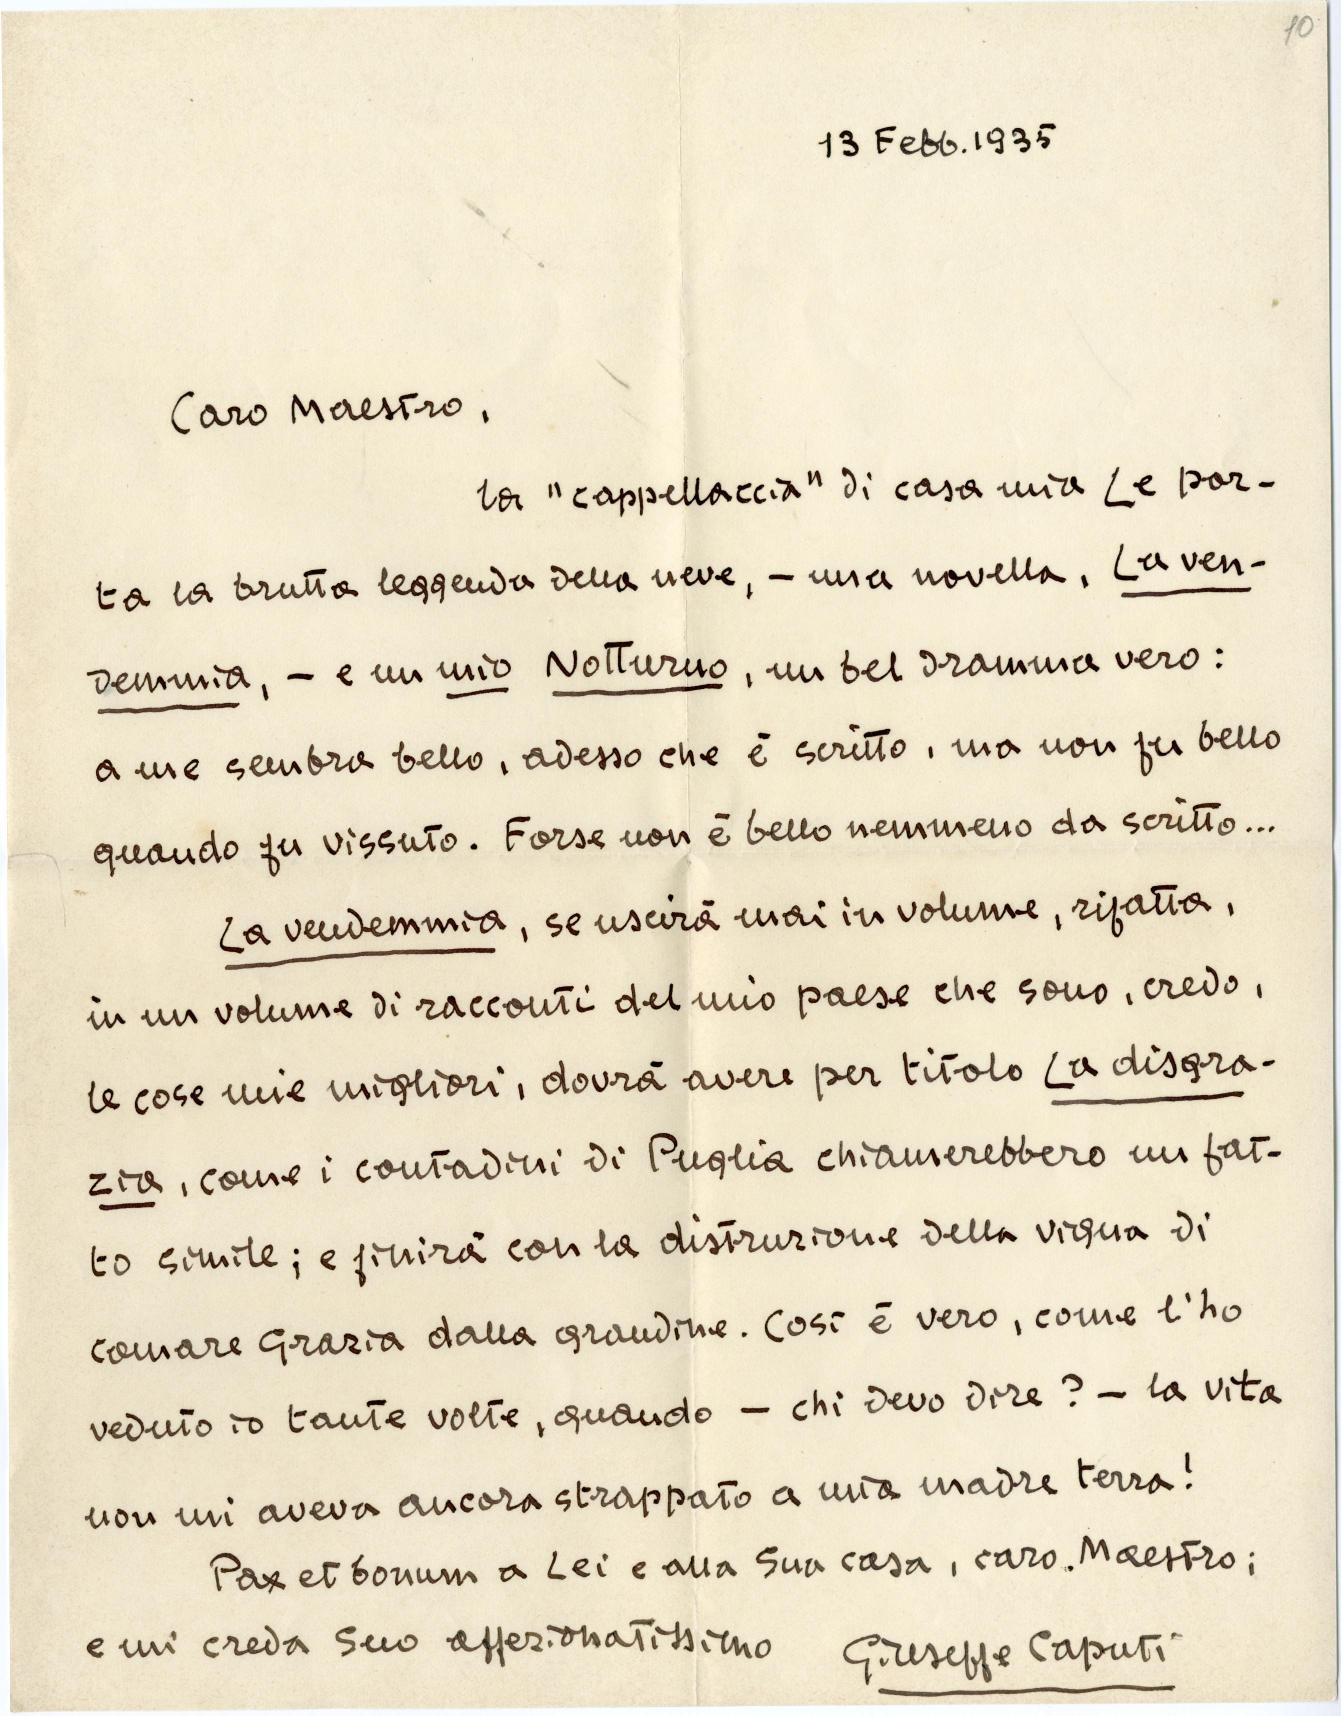 10
13 Febb. 1935
Caro Maestro,
la "cappellaccia" di casa mia Le por-
ta la brutta leggenda della neve, - una novella, La ven-
demmia, - e un mio Notturno, un bel dramma vero:
a me sembra bello, adesso che è scritto, ma non fu bello
quando fu vissuto. Forse non è bello nemmeno da scritto...
La vendemmia, se uscirà mai in volume, rifatta,
in un volume di racconti del mio paese che sono, credo,
le cose mie migliori, dovrà avere per titolo La disgra-
zia, come i contadini di Puglia chiamerebbero un fat-
to simile; e finirà con la distruzione della vigna di
comare Grazia dalla grandine. Così è vero, come l'ho
veduto io tante volte, quando - chi devo dire? - la vita
non mi aveva ancora strappato a mia madre terra!
Pax et bonum a Lei e alla Sua casa, caro Maestro;
e mi creda Suo affezionatissimo Giuseppe Caputi